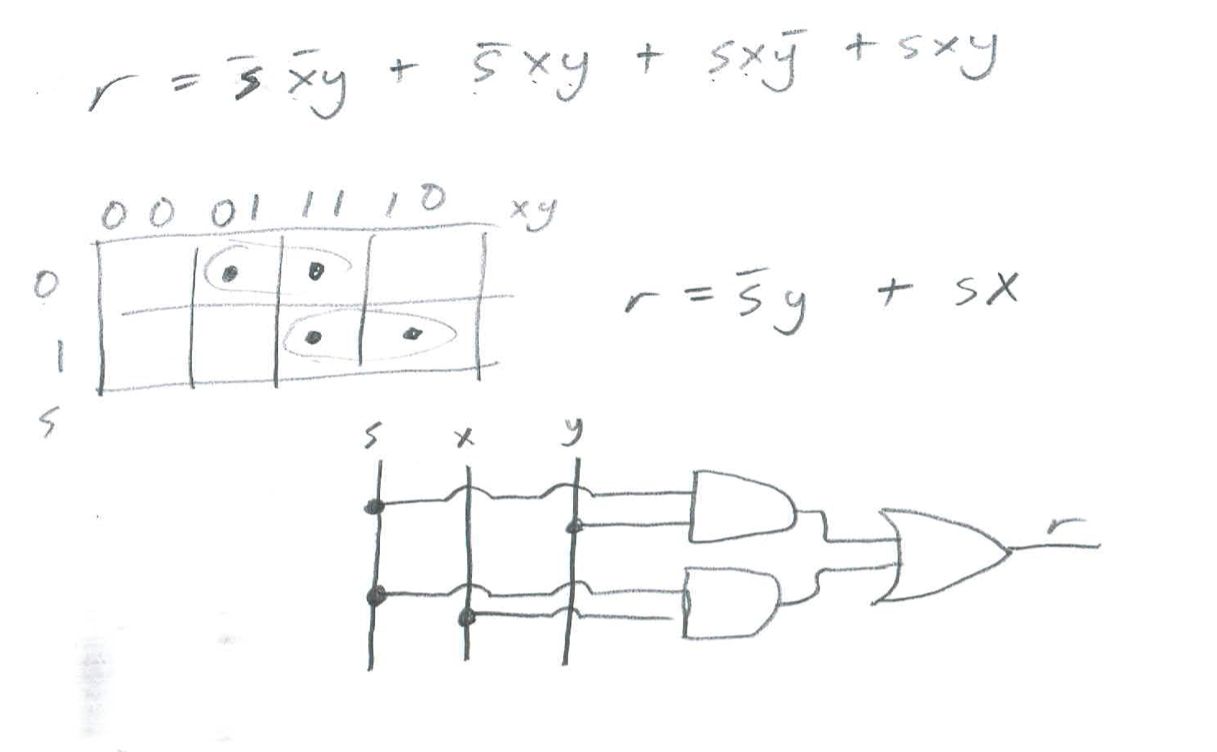 r = s̅ x̅y + s̅xy + sxy̅ + sxy
00 01 11 10 xy
0
r = s̅y + sx
1
s
s x y
r